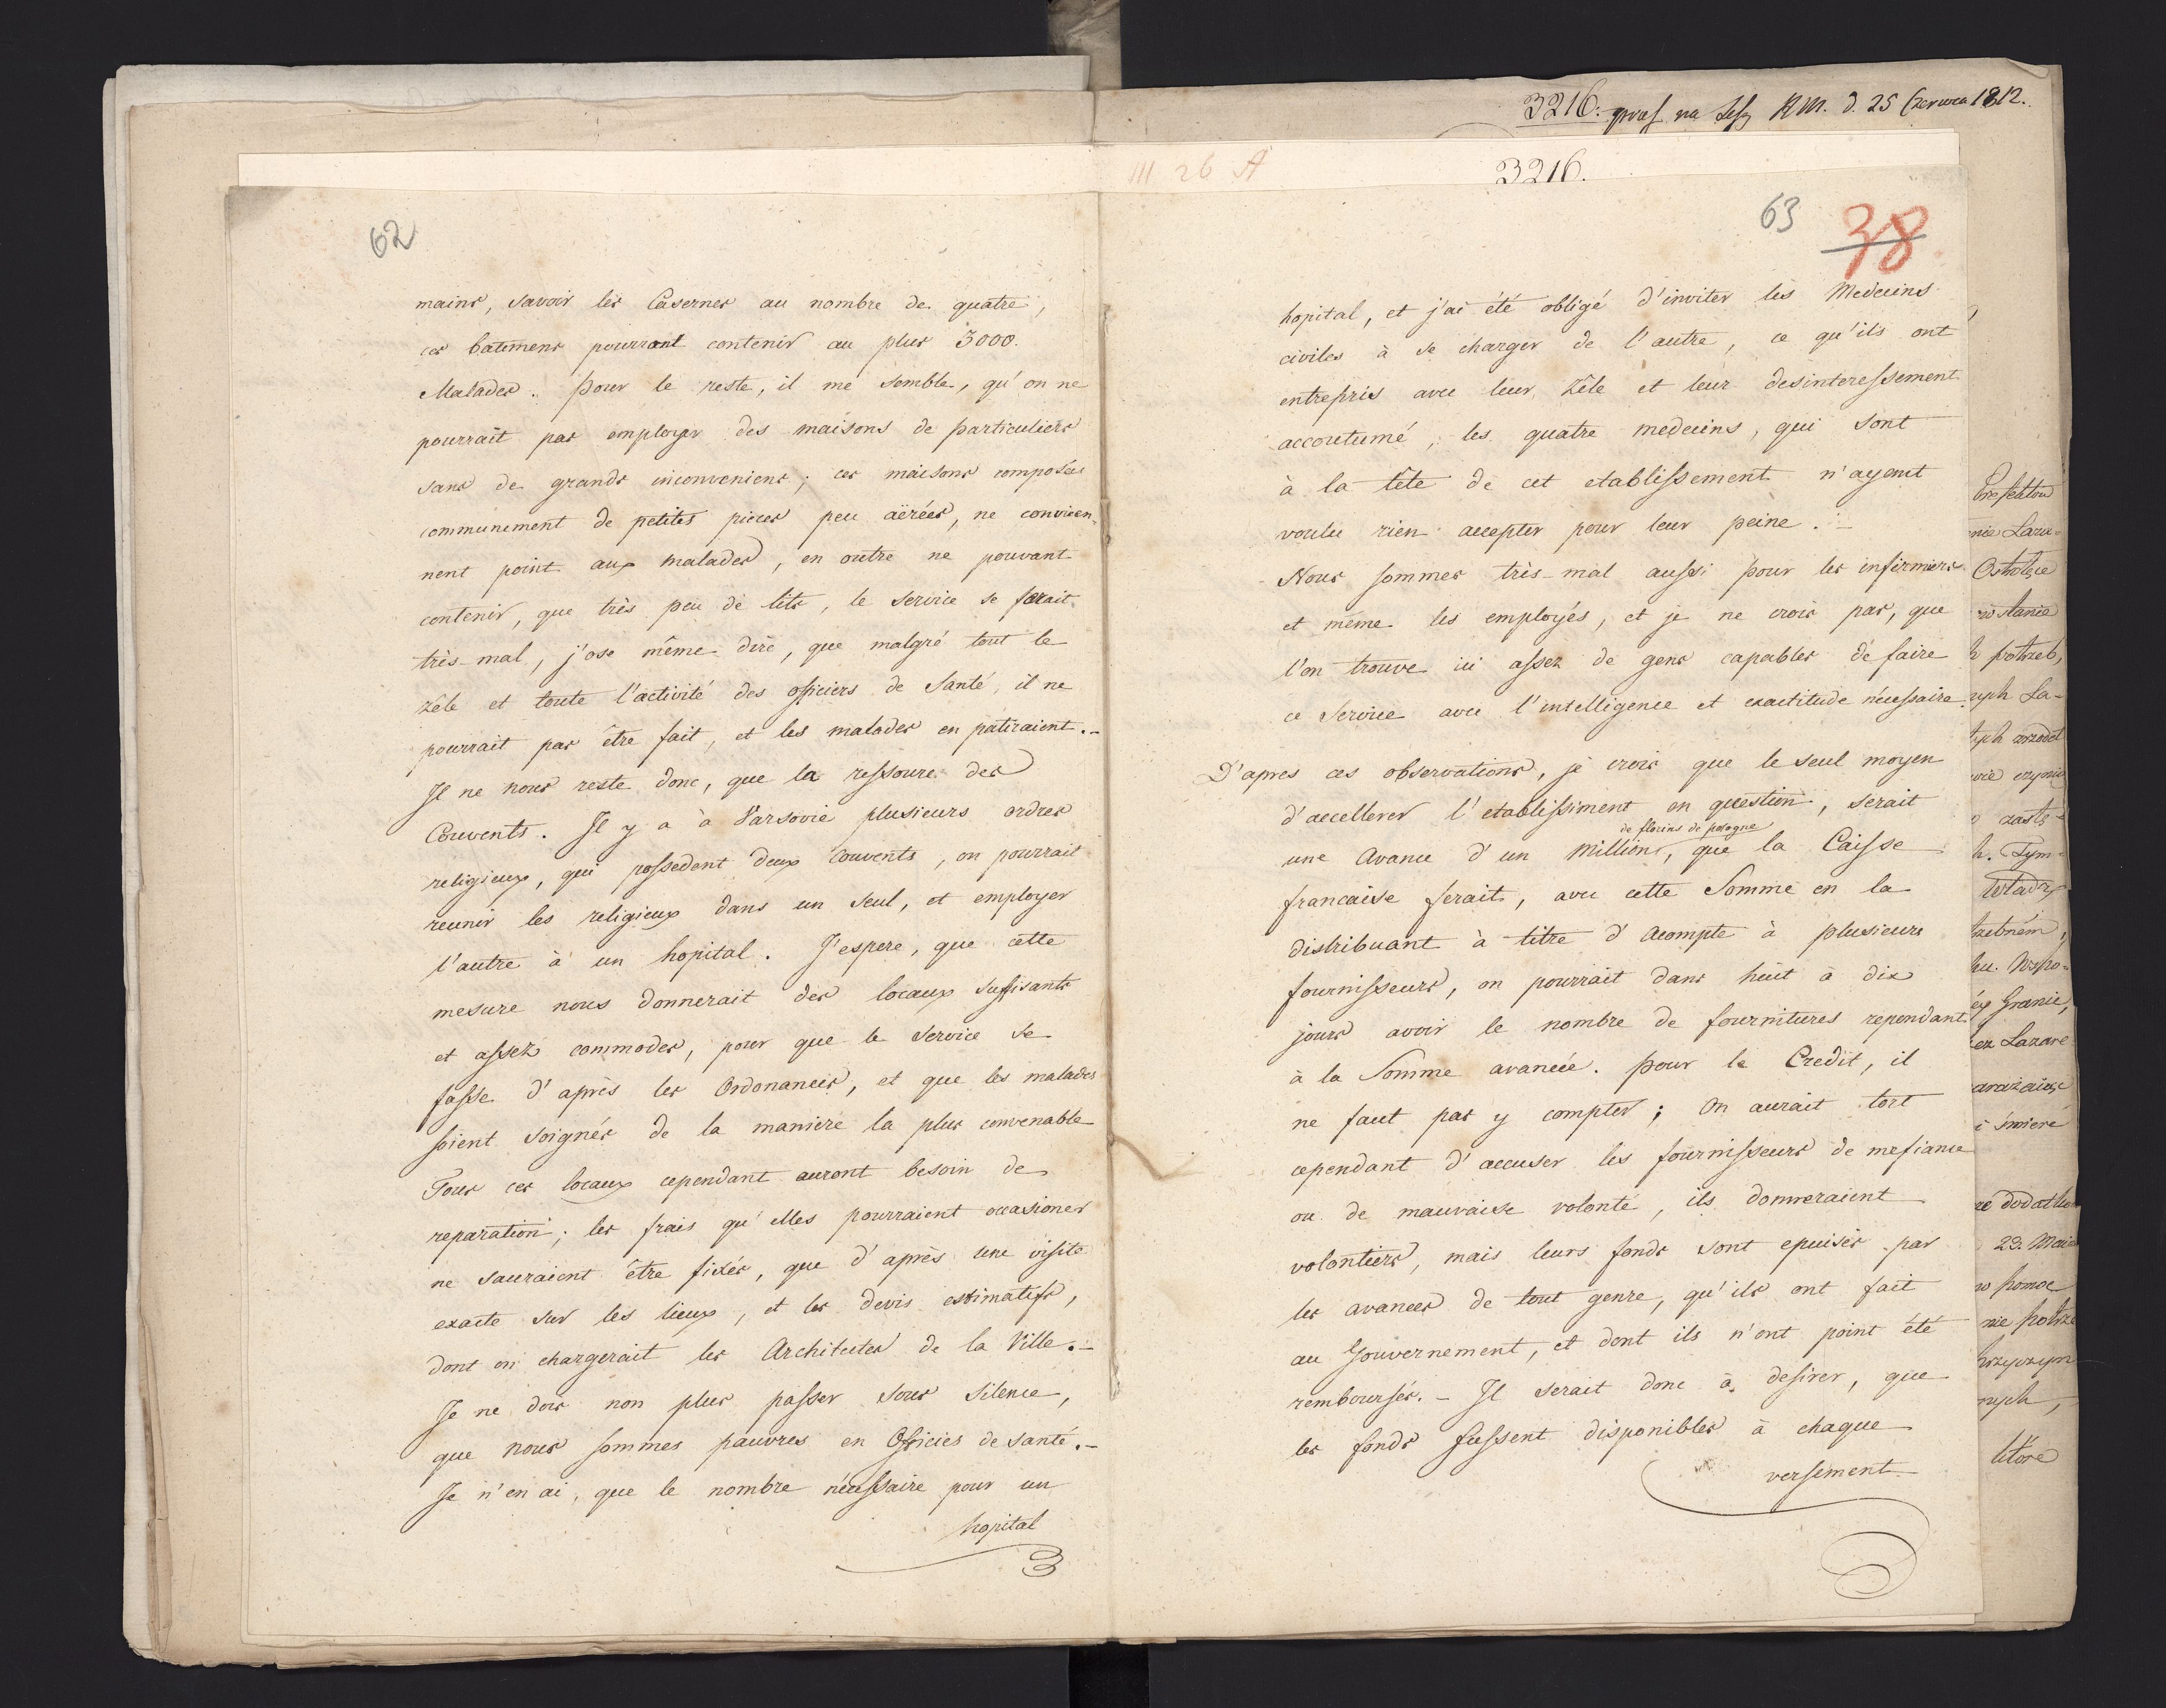 3216. na Seſs RM. d. 25 Czerwca 1812.
III 26 A
3216.
62
mains, savoir les Casernes au nombre de quatre,
ces batimens pourront contenir au plus 3000.
Malades. pour le reste, il me semble, qu'on ne
pourrait pas employer des maisons de particuliers
sans de grands inconveniens; ces maisons composées
communement de petites pieces peu aërées, ne convien-
nent point aux malades, en outre ne pouvant
contenir, que très peu de lits, le service se ferait
très-mal, j'ose même dire, que malgré tout le
zêle et toute l'activité des officiers de Santé, il ne
pourrait pas être fait, et les malades en patiraient.-
Il ne nous reste donc, que la reſsource des
Couvents. Il y a à Varsovie plusieurs ordres
religieux, qui poſsedent deux Couvents, on pourrait
reunir les religieux dans un seul, et employer
l'autre à un hopital. J'espere, que cette
mesure nous donnerait des locaux suffisants
et aſsez commodes, pour que le service se
faſse d'après les Ordonances, et que les malades
soient soignés de la maniere la plus convenable
Tous ces locaux cependant auront besoin de
reparation; les frais qu'elles pourraient occasioner
ne sauraient être fixés, que d'après une visite
exacte sur les lieux, et les devis estimatifs,
dont on chargerait les Architectes de la Ville.-
Je ne dois non plus paſser sous silence,
que nous sommes pauvres en Officies de santé.-
Je n'en ai, que le nombre néceſsaire pour un
hopital
63 38
hopital, et j'ai été obligé d'inviter les Medecins
civiles à se charger de l'autre, ce qu'ils ont
entrepris avec leur zêle et leur desintereſsement
accoutumé, les quatre medecins, qui sont
à la tête de cet etabliſsement n'ayant
voulu rien accepter pour leur peine.-
Nous sommes très-mal auſsi pour les infirmiers
et même les employés, et je ne crois pas, que
l'on trouve ici aſsez de gens capables de faire
ce Service avec l'intelligence et exactitude néceſsaire.
D'apres ces observations, je crois que le seul moyen
d'accellerer l'etabliſsiment en question, serait
de florins de pologne
une Avance d'un Million, que la Caiſse
francaise ferait, avec cette Somme en la
distribuant à titre d'Acompte à plusieurs
fourniſseurs, on pourrait dans huit à dix
jours avoir le nombre de fournitures rependant
à la Somme avancée. pour le Credit, il
ne faut pas y compter; On aurait tort
cependant d'accuser les fourniſseurs de mefiance
ou de mauvaise volonté, ils donneraient
volontiers, mais leurs fonds sont epuisés par
les avances de tout genre, qu'ils ont fait
au Gouvernement, et dont ils n'ont point été
remboursés.- Il serait donc à desirer, que
les fonds fuſsent disponibles à chaque
versement
Prefektow
Ostolęce
potrzeb,
ych La-
h. Tym-
Granic,
ez Lazare
śmierć
23. Maia
w pomoc
nie potrze
nych,
które